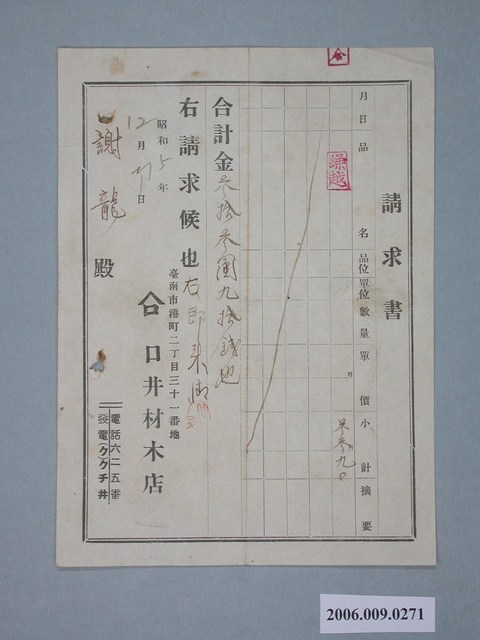 請求書
月日 品名 品位 單位 數量 單價 小計 摘要
繰越
円
參參九〇
合計金參拾參圓九拾錢也
右請求候也
昭和5年
12月31日
臺南市港町二丁目三十一番地
口井材木店
謝龍殿
電話六二五番
發電(クケチ井
2006.009.0271